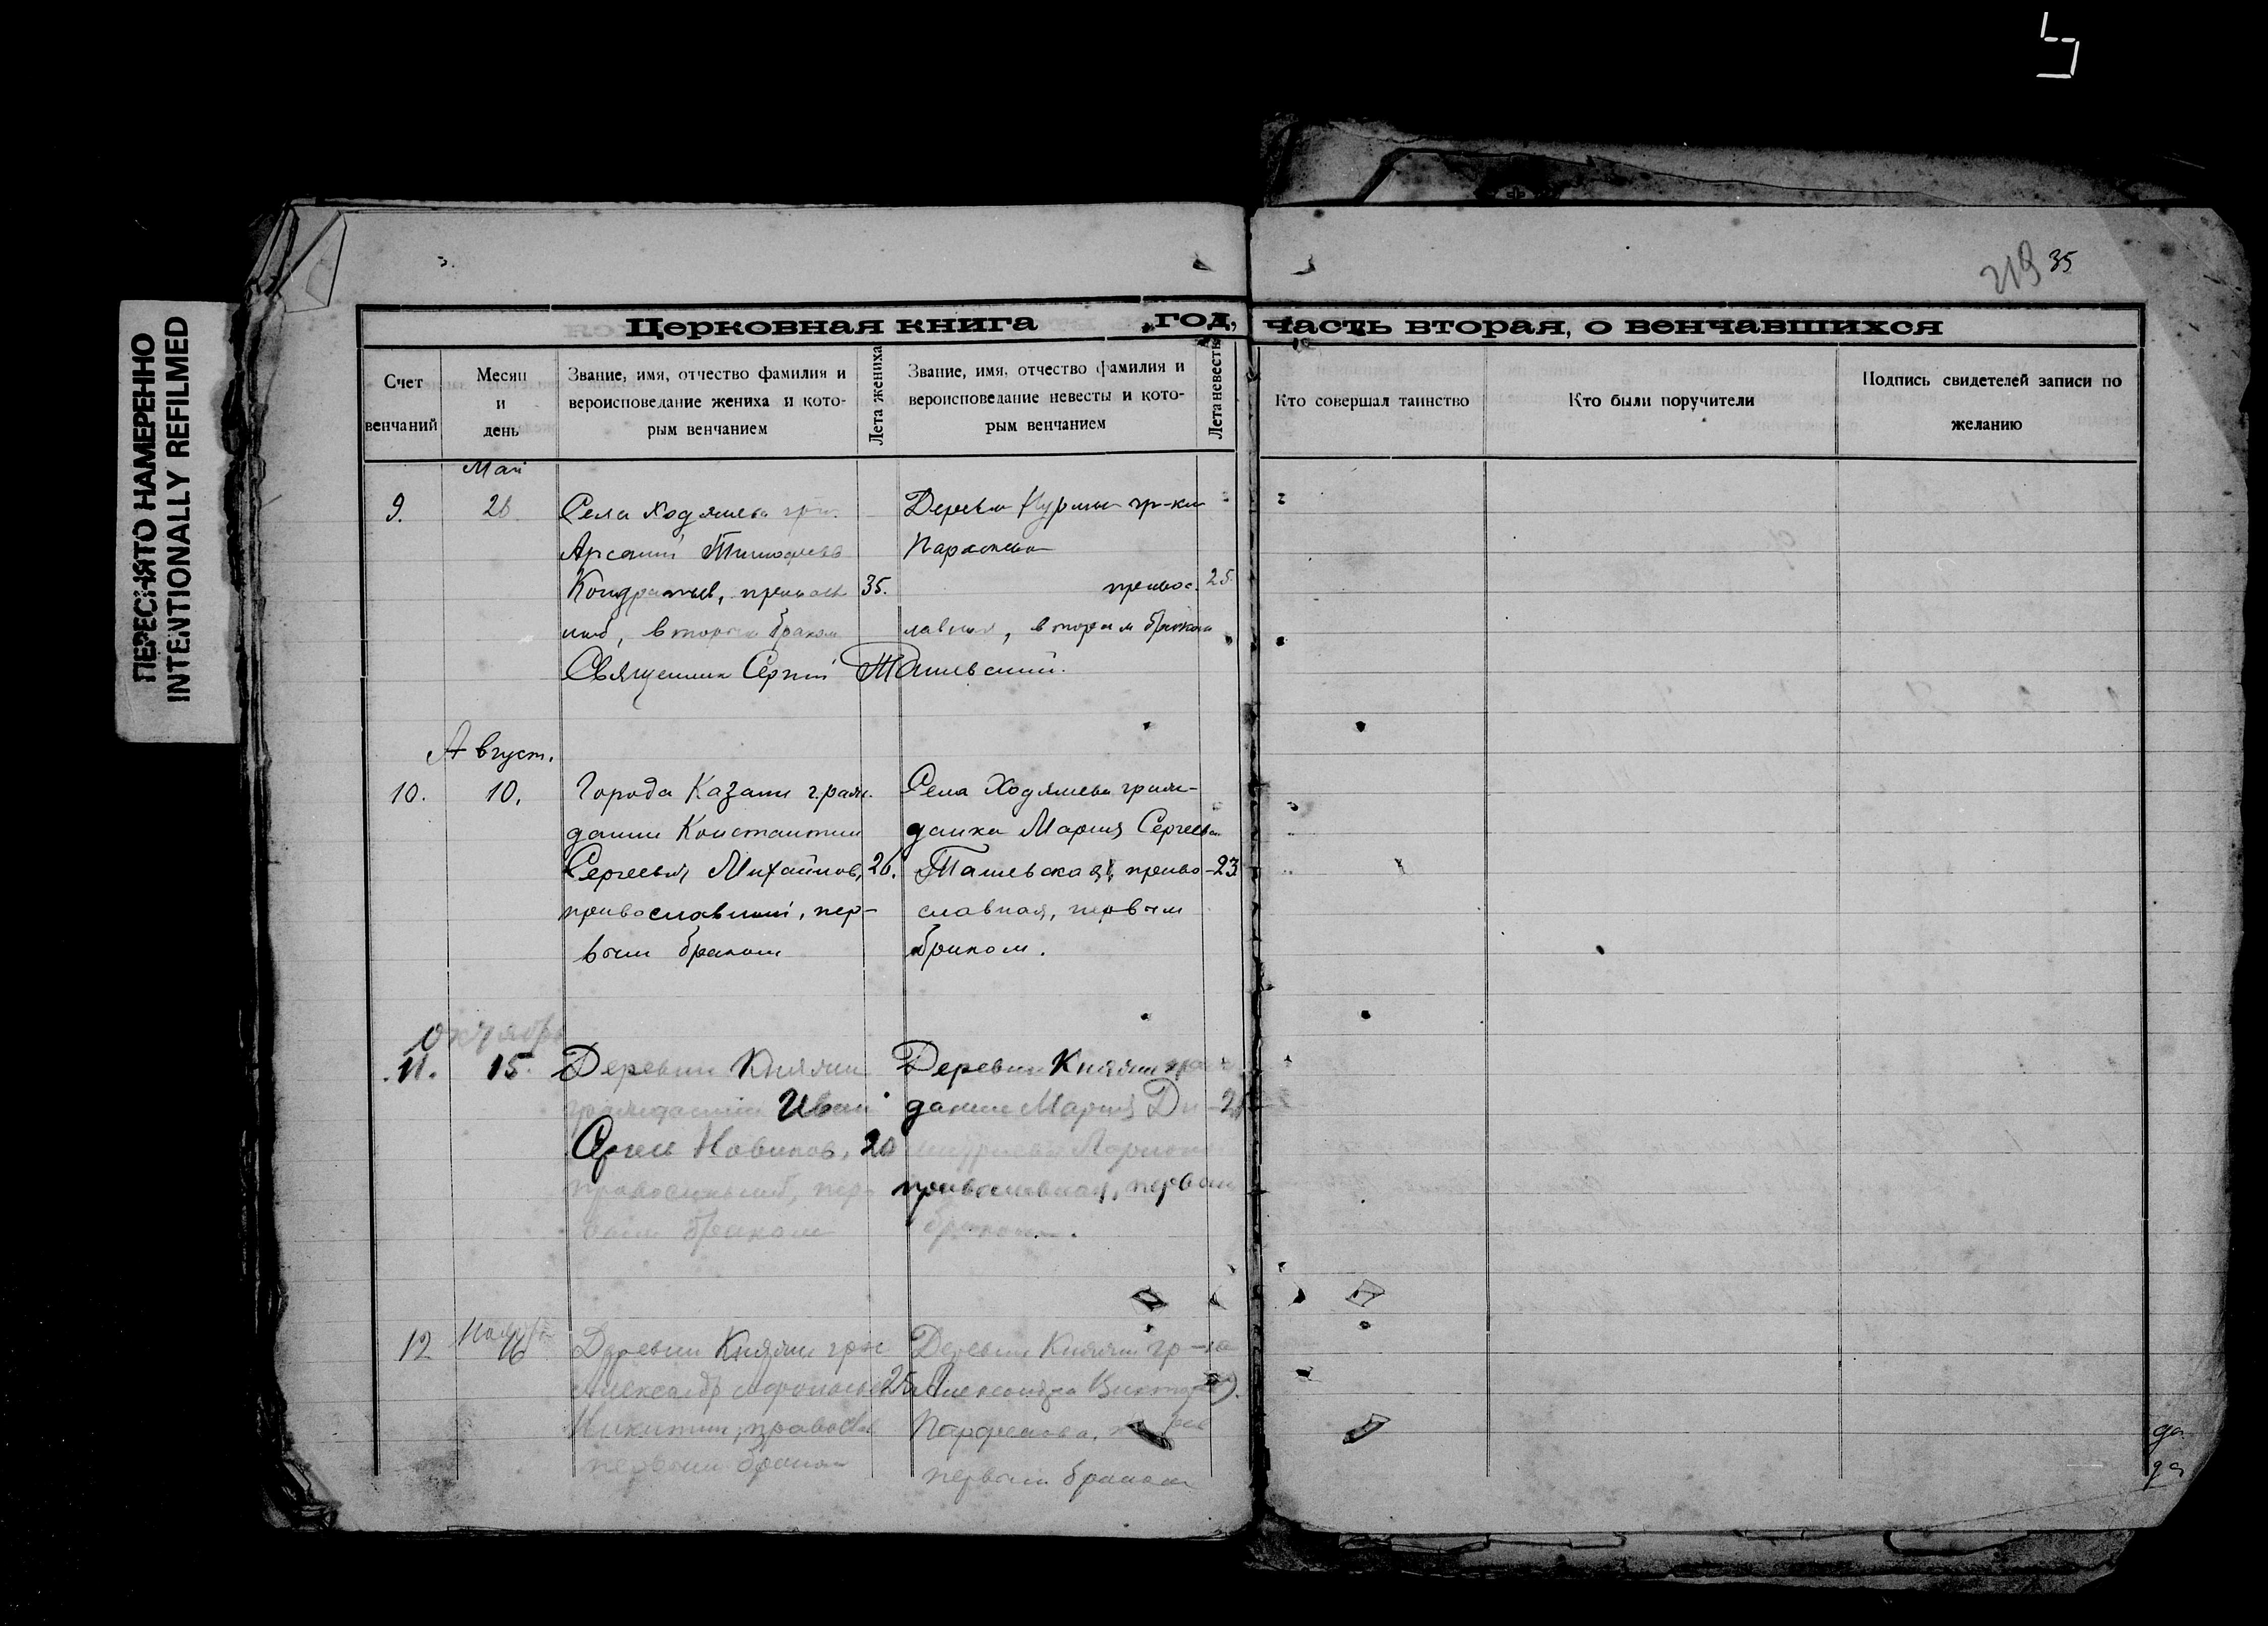 ПЕРЕСНЯТО НАМЕРЕННО
INTENTIONALLY REFILMED
219 35
Церковная книга год, часть вторая, о венчавшихся
Счет венчаний
Месяц и день
Звание, имя, отчество фамилия и вероисповедание жениха и которым венчанием
Лета жениха
Звание, имя, отчество фамилия и вероисповедание невесты и которым венчанием
Лета невесты
Кто совершал таинство
Кто были поручители
Подпись свидетелей записи по желанию
Май
9.
Села Ходяшева
Арсений Тимофеев
Кондратьев, 35.
вторым браком
Деревни гр-ка
Параскева
правос- 25.
лавная, вторым браком
Священник Сергий Ташевский.
Август.
10. 10.
Города Казани граж-
данин Константин
Сергеевич Михайлов, 26.
православный, пер-
вым браком
Села Ходяшева граж-
данка Мария Сергеева
Ташевская, право- 23
славная, первым
браком.
Октябрь
11. 15.
Деревни Княжи
гражданин Иван
Сергеев Новиков, 20
православный, пер-
вым браком
Деревни Княжи
Мария Ди-
митриева
православная, первым
браком.
12 Ноябрь 16
Деревни Княжи
Александр 25
Никитин, правосл
первым браком
Деревни Княжи гр-ка
Александра
Парфенова,
первым браком
да
да